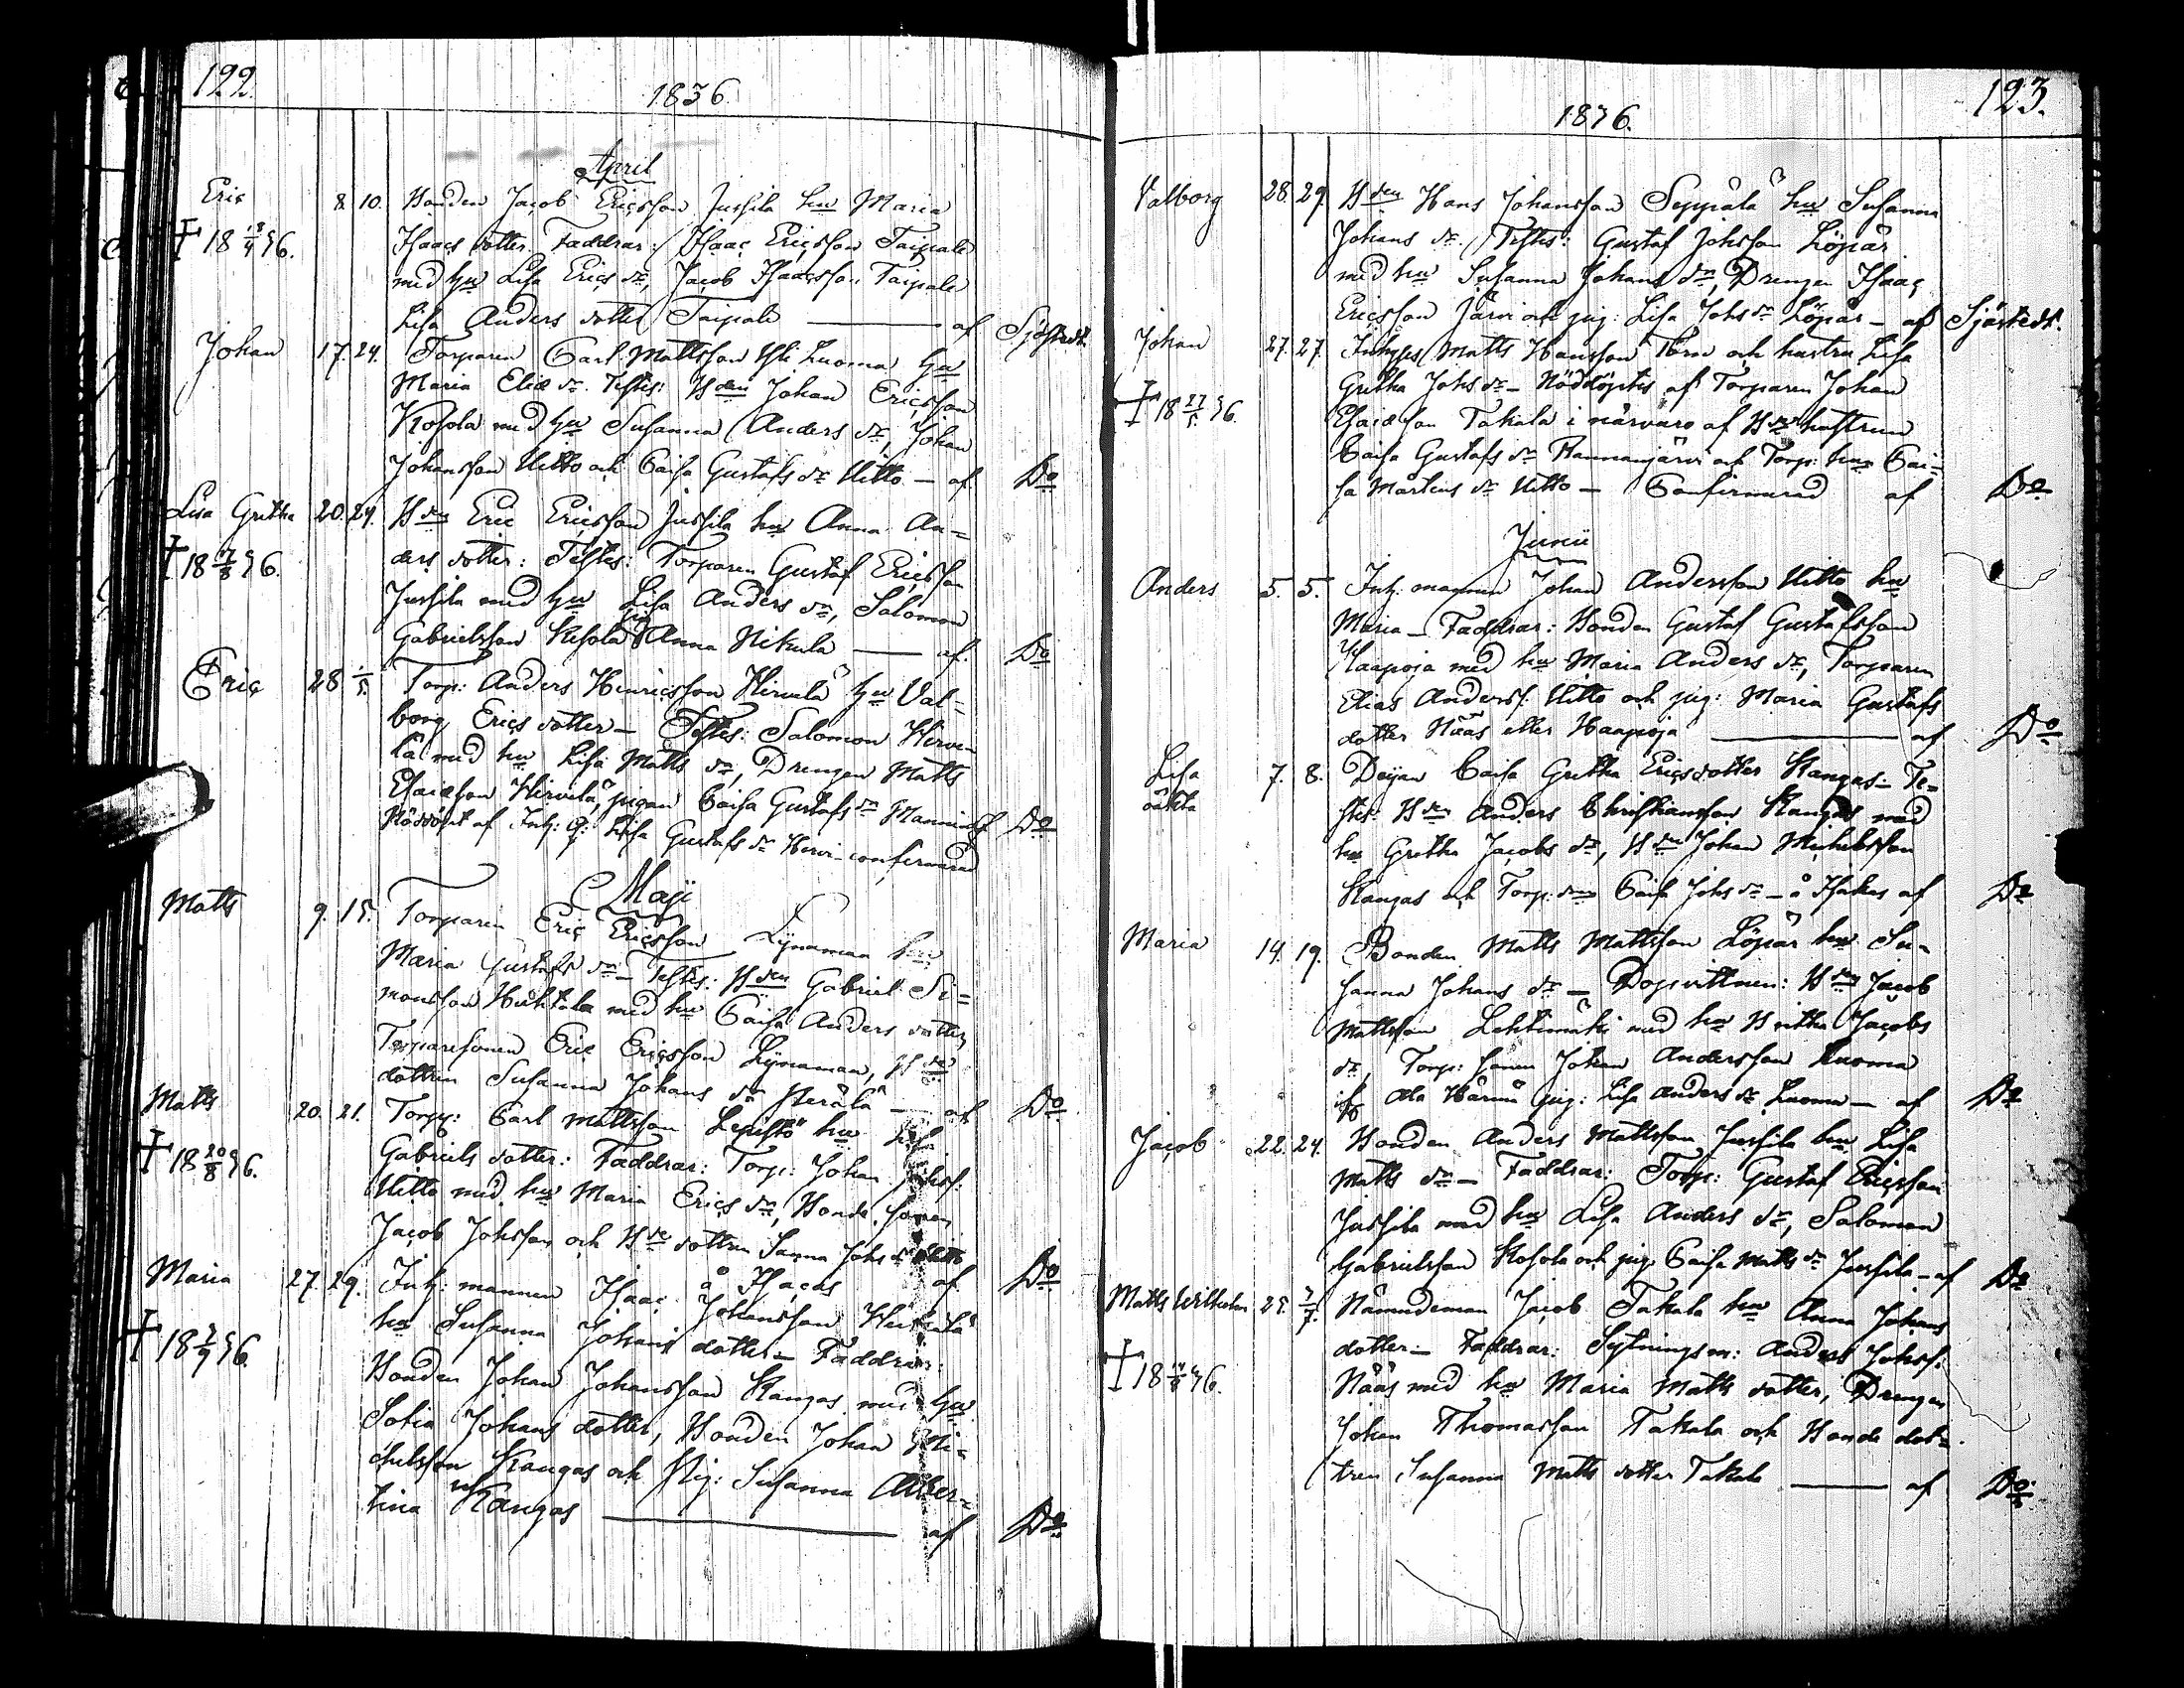 122.
1836.
April
Eric 8. 10. Bonden Jacob Ericsson Jussila hu Maria
† 18 18/4 36. Isaacs dotter. Faddrar: Isaac Ericsson Taipale
med hu Lisa Erics dr, Jacob Isaacsson Taipale
Lisa Anders dotter Taipale — af Sjöstedt.
Johan 17. 24. Torparen Carl Mattsson Luoma hu
Maria Eliæ dr. Testes: Bden Johan Ericsson
Kosola med hu Susanna Anders dr, Johan
Johansson Uitto och Caisa Gustafs dr Uitto — af Do
Lisa Gretha 20. 24. Bden Eric Ericsson Jussila hu Anna An=
† 18 7/8 36. ders dotter: Testes: Torparen Gustaf Ericsson
Jussila med hu Lisa Anders dr, Salomon
Gabrielsson Kosola pig Anna Nikula — af. Do
Eric 28 1/5. Torp: Anders Henricsson Hirvelä hu Val=
borg Erics dotter — Testes: Salomon Hirve
lä med hu Lisa Matts dr, Drengen Matts
Esaiæson Hirvelä, pigan Caisa Gustafs dr Do
Nöddöpt af Inh: q: Lisa Gustafs dr confirmerad
Maji
Matts 9. 15. Torparen Eric Ericsson Lynaman hu
Maria Gustafs dr — Testes: Bden Gabriel Si=
monsson Huhtala med hu Caisa Anders dotter
Torparesonen Eric Ericsson Lynaman, Bde
dottren Susanna Johans dr Herälä — af Do
Matts 20. 21. Torp: Carl Mattsson Lepistö hu Lisa
† 18 20/8 36. Gabriels dotter: Faddrar: Torp: Johan Johsf:
Uitto med hu Maria Erics dr, Bonde sonen
Jacob Johsson och Bde dottren Sanna Johs dr Uitto
å Isacas af Do
Maria 27. 29. Inh: mannen Isaac Johansson
† 18 7/9 36. hu Susanna Johans dotter — Faddrar:
Bonden Johan Johansson Kangas med hu
Sofia Johans dotter, Bonden Johan Mi=
chelsson Kangas och pig: Susanna Alber=
tina Kangas — af Do
123.
1836.
Valborg 28. 29. Bden Hans Johansson Seppälä hu Susanna
Johans dr. Testes: Gustaf Johsson Löpär
med hu Susanna Johans dr, Drengen Isaac
Ericsson Järvi och pig: Lisa Johs dr Löpär — af Sjöstedt.
Johan 27. 27. Inhyses Matts Hansson och hustru Lisa
† 18 27/5 36. Gretha Johs dr — Nöddöptes af Torparen Johan
Esaiæson Takala i närvaro af Bde hustrun
Caisa Gustafs dr Rannanjärvi och Torp: hu Cai=
sa Mårtens dr Uitto — Confirmerad af Do
Junii
Anders 5. 5. Inh: mannen Johan Andersson Uitto hu
Maria — Faddrar: Bonden Gustaf Gustafsson
Haapoja med hu Maria Anders dr, Torparen
Elias Andersf. Uitto och pig: Maria Gustafs
dotter Nääs eller Haapoja — af Do
Lisa 7. 8. Deijan Caisa Gretha Ericsdotter Kangas — Te=
oäkta stes: Bden Anders Christiansson Kangas med
hu Gretha Jacobs dr, Bden Johan Michelsson
Kangas och Torp: Caisa Johs dr — å Isakas af Do
Maria 14. 19. Bonden Matts Mattsson Löpär hu Su=
sanna Johans dr — Dopvittnen: Bden Jacob
Mattsson Lehtimäki med hu Britha Jacobs
dr, Torp: sonen Johan Andersson Luoma
pig: Lisa Anders dr Luoma — af Do
Jacob 22. 24. Bonden Anders Mattsson Jussila hu Lisa
Matts dr — Faddrar: Torp: Gustaf Ericsson
Jussila med hu Lisa Anders dr, Salomon
Gabrielsson Kosola och pig: Caisa Matts dr Jussila — af Do
Matts Wilhelm 25. 3/7. Nämndeman Jacob Takala hu Anna Johans
† 36. dotter — Faddrar: Sytningsm: Anders Johsf:
Nääs med hu Maria Matts dotter, Drengen
Johan Thomasson Takala och Bonde dot=
tren Susanna Matts dotter Takala — af Do